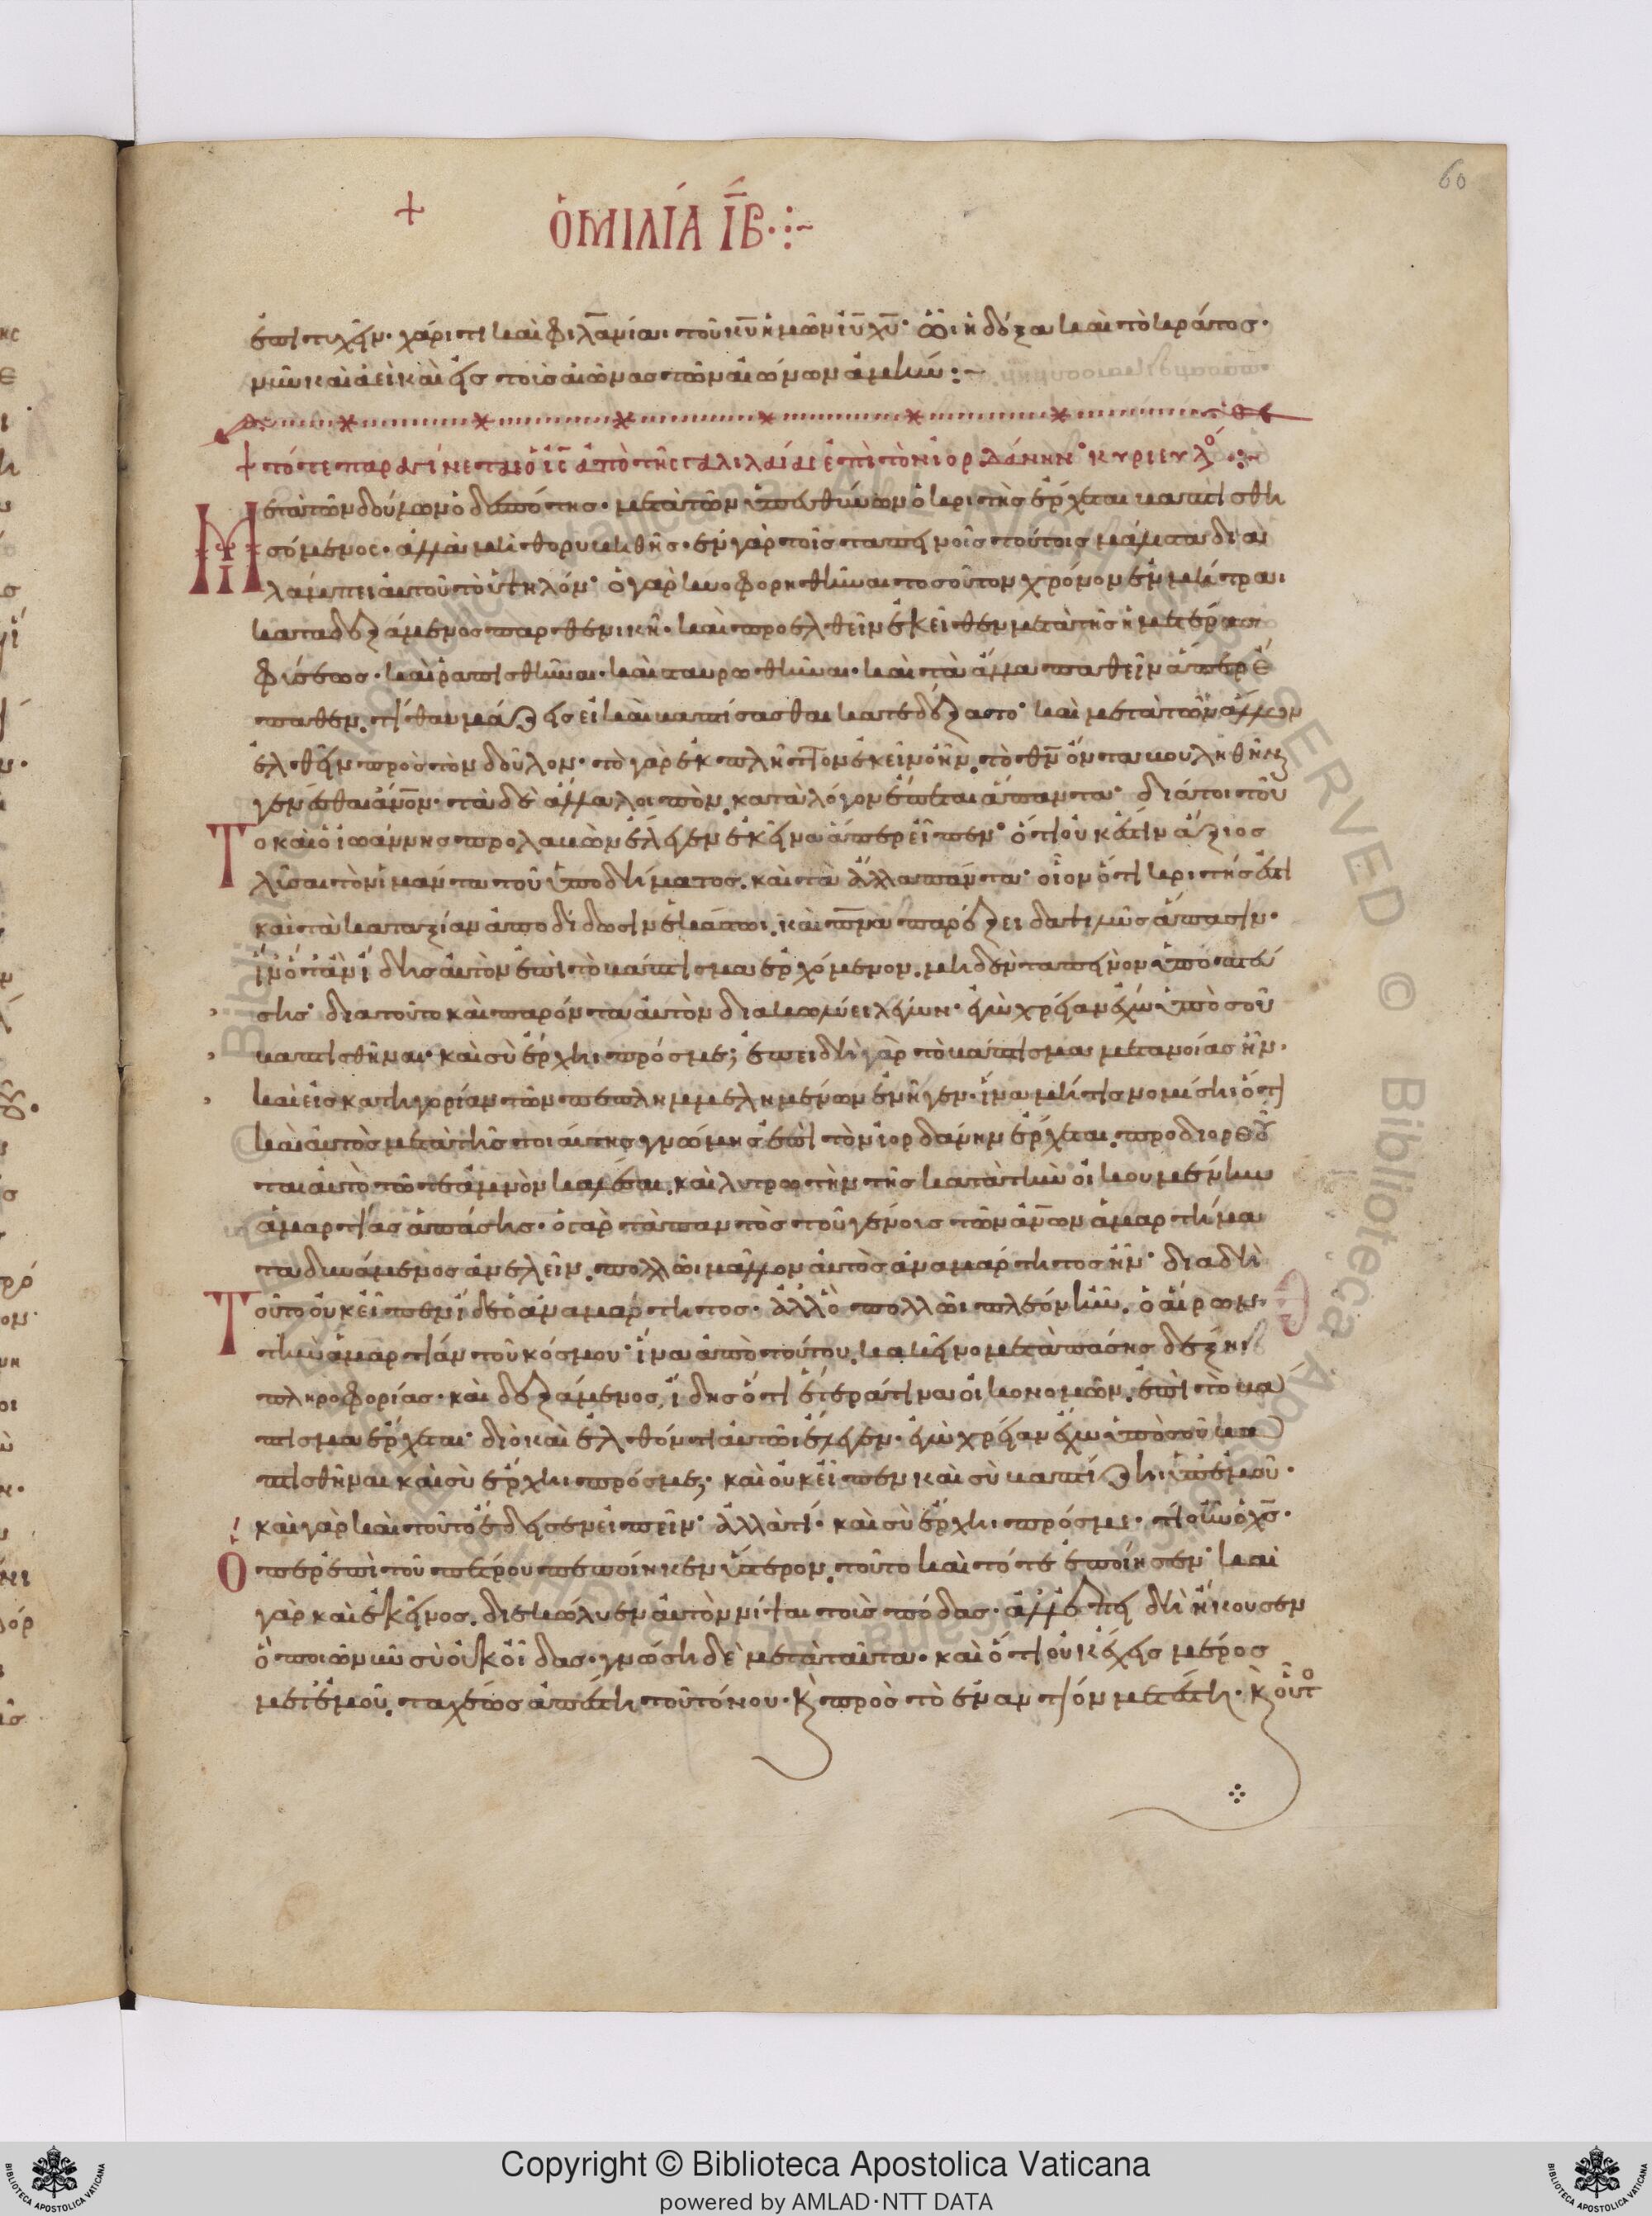 60
+ ὉΜΙΛΊΑ ΙΒ̅ ·:·~
ἐπιτυχεῖν· χάριτι καὶ φιλα̅νίαι τοῦ κυ̅ ἡμῶν ἰυ̅ χυ̅· ὧι ἡ δόξα καὶ τὸ κράτος·
νῦν καὶ ἀεὶ καὶ εἰς τοὺς αἰῶνας τῶν αἰώνων ἀμήν :~
+ τότε παραγίνεται ὁ ἰς̅ ἀπὸ τῆς γαλιλαίας ἐπὶ τὸν ἰορδάνην·
Μετὰ τῶν δούλων ὁ δεσπότης· μετὰ τῶν ὑπευθύνων ὁ κριτὴς ἔρχεται βαπτισθη
σόμενος· ἀλλὰ μὴ θορυβηθῆς· ἐν γὰρ τοῖς ταπεινοῖς τούτοις μάλιστα δια
λάμπει αὐτοῦ τὸ ὑψηλόν· ὁ γὰρ κυοφορηθῆναι τοσοῦτον χρόνον ἐν μήτραι
καταδεξάμενος παρθενικῆ· καὶ προελθεῖν ἐκεῖθεν μετὰ τῆς ἡμετέρας
φύσεως· καὶ ῥαπισθῆναι· καὶ σταυρωθῆναι· καὶ τὰ ἄλλα παθεῖν ἅπερ ἔ
παθεν· τί θαυμάζεις εἰ καὶ βαπτίσασθαι κατεδέξατο· καὶ μετὰ τῶν ἄλλων
ἐλθεῖν πρὸς τὸν δοῦλον· τὸ γὰρ ἐκπλῆττον ἐκεῖνο ἦν. τὸ θν̅ ὄντα βουληθῆναι
γενέσθαι ἄνο̅ν· τὰ δὲ ἄλλα λοιπὸν κατὰ λόγον ἕπεται ἅπαντα· διάτοι τοῦ
Το καὶ ὁ ἰωάννης προλαβὼν ἔλεγεν ἐκεῖνα ἅπερ εἶπεν· ὅτι οὐκ ἔστιν ἄξιος
λῦσαι τὸν ἱμάντα τοῦ ὑποδήματος. καὶ τὰ ἄλλα πάντα· οἷον ὅτι κριτής ἐστι
καὶ τὰ κατ᾽ ἀξίαν ἀποδίδωσιν ἑκάστωι. καὶ πνα̅ παρέξει δαψιλῶς ἅπασιν·
ἵν᾽ ὅταν ἴδης αὐτὸν ἐπὶ τὸ βάπτισμα ἐρχόμενον. μηδὲν ταπεινὸν ὑποπτεύ
σης· διατοῦτο καὶ παρόντα αὐτὸν διακωλύει λέγων· ἐγὼ χρείαν ἔχω ὑπὸ σοῦ
βαπτισθῆναι· καὶ σὺ ἔρχηι πρός με; ἐπειδὴ γὰρ τὸ βάπτισμα μετανοίας ἦν·
καὶ εἰς κατηγορίαν τῶν πεπλημμελημένων ἐνῆγεν· ἵνα μή τις νομίσηι ὅτι
καὶ αὐτὸς μετὰ τῆς τοιαύτης γνώμης ἐπὶ τὸν ἰορδάνην ἔρχεται. προδιορθοῦ
ται αὐτὸ τῶ τε ἀμνὸν καλέσαι. καὶ λυτρωτὴν τῆς κατὰ τὴν οἰκουμένην
ἁμαρτίας ἁπάσης· ὁ γὰρ τὰ παντὸς τοῦ γένους τῶν ἀνω̅ν ἁμαρτήμα
τα δυνάμενος ἀνελεῖν. πολλῶι μᾶλλον αὐτὸς ἀναμάρτητος ἦν· διαδὴ
Τοῦτο οὐκ εἶπεν ἴδε ὁ ἀναμάρτητος· ἀλλ᾽ ὃ πολλῶι πλέον ἦν. ὁ αἴρων
τὴν ἁμαρτίαν τοῦ κόσμου· ἵνα ἀπὸ τούτου. κακεῖνο μετὰ πάσης δέξηι
πληροφορίας· καὶ δεξάμενος, ἴδης ὅτι ἕτερά τινα οἰκονομῶν. ἐπὶ τὸ βά
πτισμα ἔρχεται· διὸ καὶ ἐλθόντι αὐτῶι ἔλεγεν· ἐγὼ χρείαν ἔχω ὑπὸ σοῦ βα
πτισθῆναι καὶ σὺ ἔρχηι πρός με; καὶ οὐκ εἶπεν καὶ σὺ βαπτίζηι ὑπ᾽ ἐμοῦ·
καὶ γὰρ καὶ τοῦτο ἔδεισεν εἰπεῖν· ἀλλὰ τί· καὶ σὺ ἔρχηι πρός με· τί οὖν ὁ χς̅·
Ὅπερ ἐπὶ τοῦ πέτρου πεποίηκεν ὕστερον. τοῦτο καὶ τότε ἐποίησεν· καὶ
γὰρ καὶ ἐκεῖνος. διεκώλυεν αὐτὸν νίψαι τοὺς πόδας· ἀλλ᾽ ἐπειδὴ ἤκουσεν
ὃ ποιῶ νῦν σὺ οὐκ οἶδας· γνώσηι δὲ μετὰ ταῦτα· καὶ ὅτι οὐκ ἔχεις μέρος
μετ᾽ ἐμοῦ. ταχέως ἀπέστη τοῦ τόνου· κ̀ πρὸς τὸ ἐναντίον μετέστη· κ̀ οὗτο
Copyright © Biblioteca Apostolica Vaticana
powered by AMLAD·NTT DATA